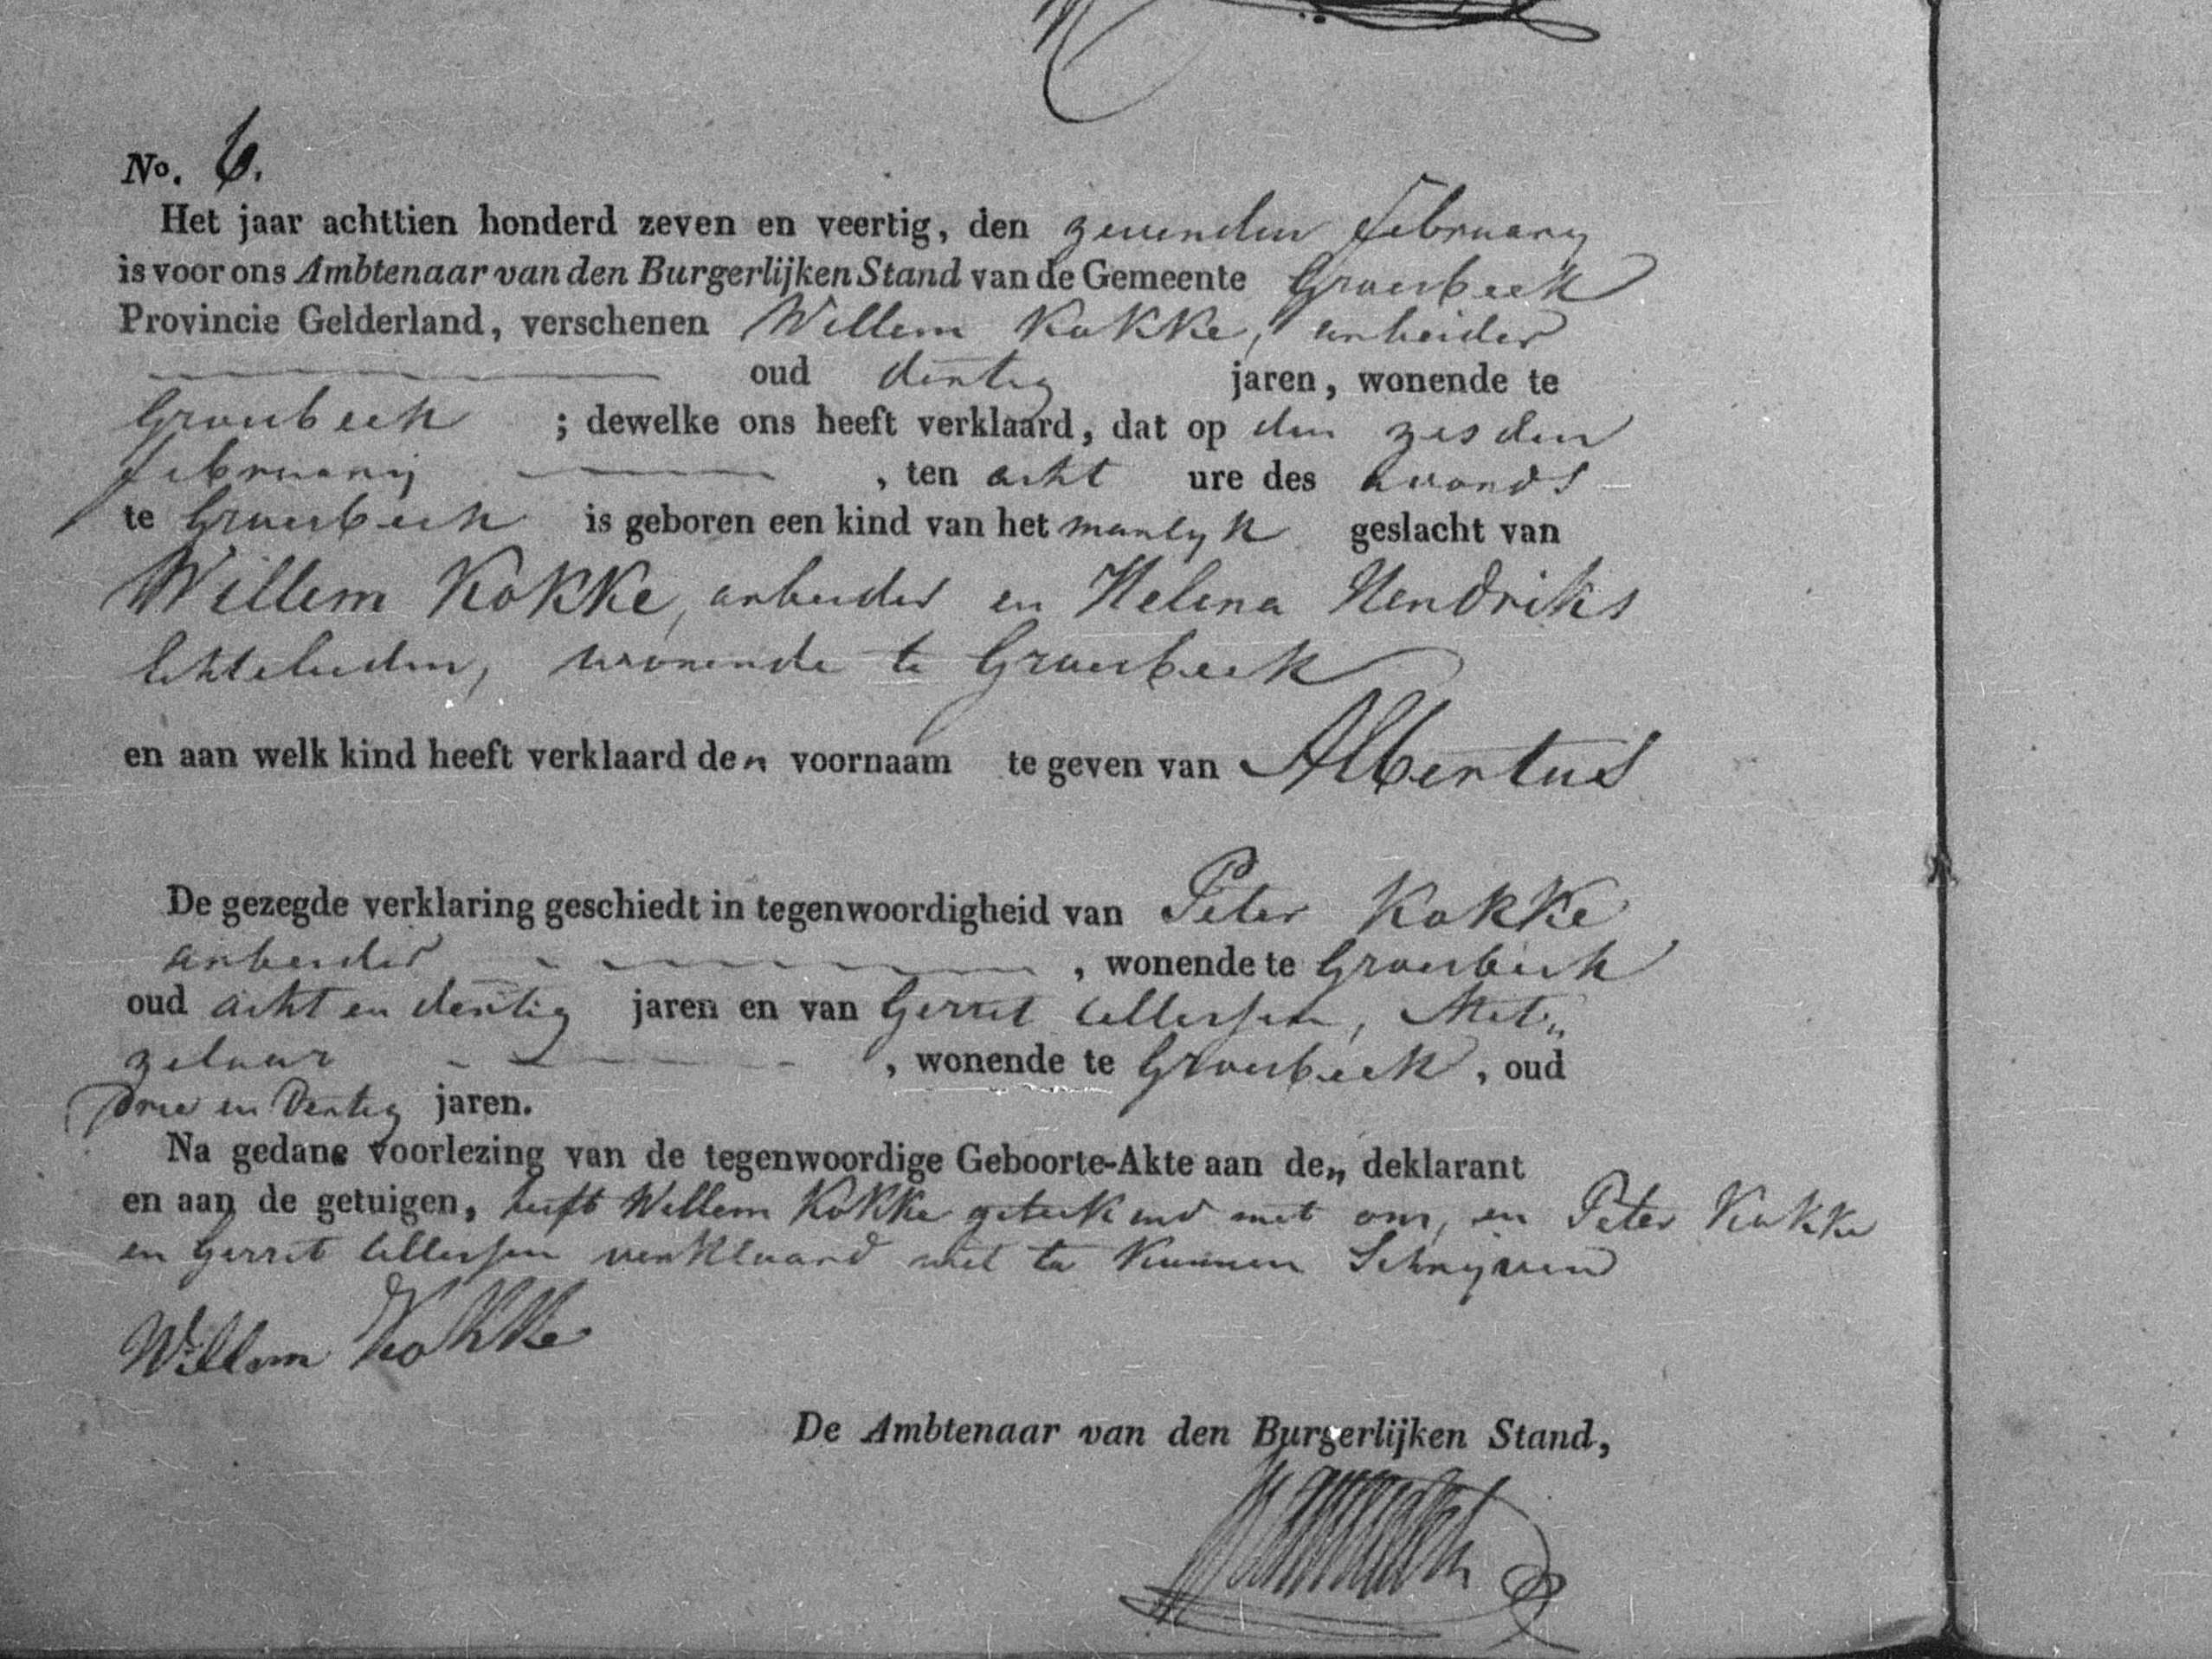 No. 6.
Het jaar achttien honderd zeven en veertig, den zevenden february
is voor ons Ambtenaar van den Burgerlijken Stand van de Gemeente Groesbeek
Provincie Gelderland, verschenen Willem Kokke, arbeider
oud dertig jaren, wonende te
Groesbeek ; dewelke ons heeft verklaard, dat op den zesden
february , ten acht ure des avonds
te Groesbeek is geboren een kind van het manlyk geslacht van
Willem Kokke, arbeider en Helena Hendriks
Echtelieden, wonende te Groesbeek
en aan welk kind heeft verklaard den voornaam te geven van Albertus
De gezegde verklaring geschiedt in tegenwoordigheid van Peter Kokke
arbeider , wonende te Groesbeek
oud acht en dertig jaren en van Gerrit Ellersen, Met„
zelaar , wonende te Groesbeek , oud
Drie en Dertig jaren.
Na gedane voorlezing van de tegenwoordige Geboorte-Akte aan de„ deklarant
en aan de getuigen, heeft Willem Kokke geteekend met ons, en Peter Kokke
en Gerrit Ellersen verklaard niet te kunnen Schrijven
Willem Kokke
De Ambtenaar van den Burgerlijken Stand,